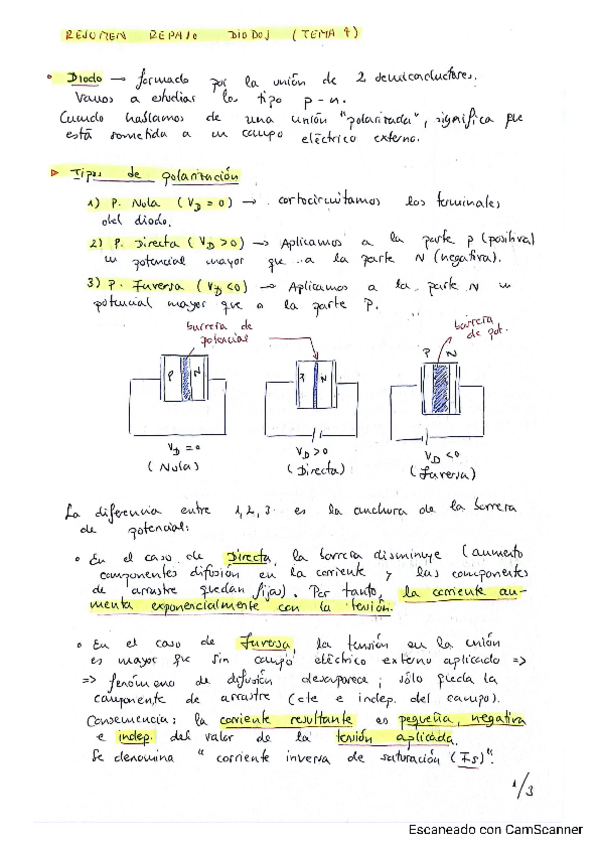 RESUMEN REPASO DIODOS (TEMA 4)
• Diodo → formado por la unión de 2 semiconductores.
Vamos a estudiar los tipo p-n.
Cuando hablamos de una unión "polarizada", significa que
está sometida a un campo eléctrico externo.
▷ Tipos de polarización
1) P. Nula (V_D = 0) → cortocircuitamos los terminales
del diodo.
2) P. Directa (V_D > 0) → Aplicamos a la parte p (positiva)
un potencial mayor que a la parte N (negativa).
3) P. Inversa (V_D < 0) → Aplicamos a la parte N un
potencial mayor que a la parte P.
barrera de
potencial
barrera
de pot.
P N
P N
P N
V_D = 0
(Nula)
V_D > 0
(Directa)
V_D < 0
(Inversa)
La diferencia entre 1, 2, 3 es la anchura de la barrera
de potencial:
• En el caso de Directa, la barrera disminuye (aumento
componentes difusión en la corriente y las componentes
de arrastre quedan fijas). Por tanto, la corriente au-
menta exponencialmente con la tensión.
• En el caso de Inversa, la tensión en la unión
es mayor que sin campo eléctrico externo aplicado =>
=> fenómeno de difusión desaparece; sólo queda la
componente de arrastre (cte e indep. del campo).
Consecuencia: la corriente resultante es pequeña, negativa
e indep. del valor de la tensión aplicada.
Se denomina "corriente inversa de saturación (Is)".
1/3
Escaneado con CamScanner